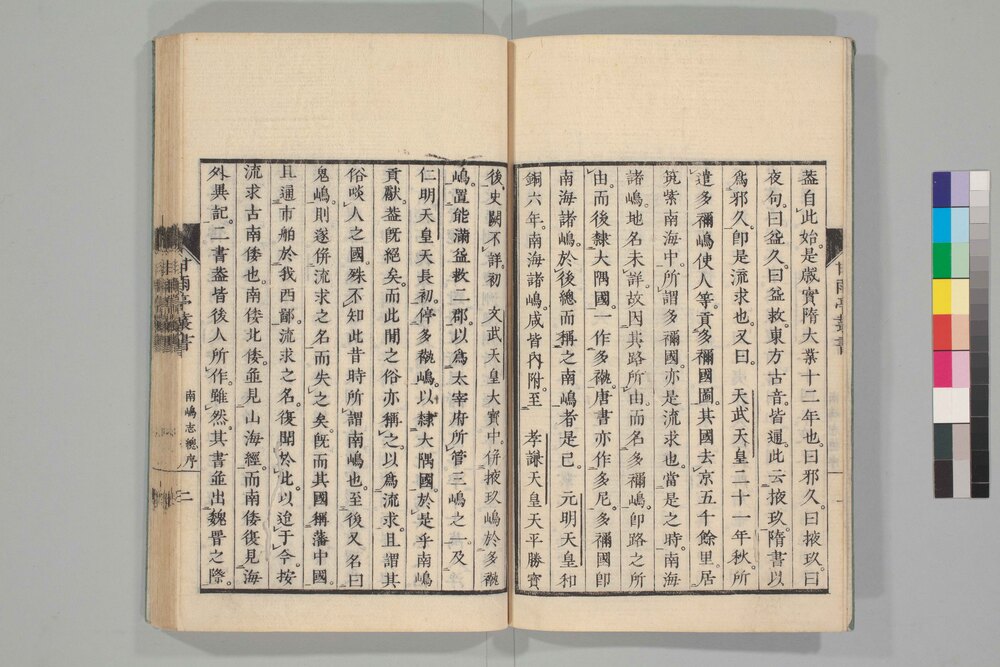 葢自此始。是歲實隋大業十二年也。曰邪久。曰掖玖。曰
夜句。曰益久。曰益救。東方古音皆通。此云掖玖。隋書以
爲邪久。卽是流求也。又曰。天武天皇二十一年秋。所
遣多禰嶋使人等。貢多禰國圖。其國去京五千餘里。居
筑紫南海中。所謂多禰國。亦是流求也。當是之時。南海
諸嶋地名未詳。故因其路所由而名。多禰嶋卽路之所
由。而後隸大隅國。一作多褹。唐書亦作多尼。多禰國卽
南海諸嶋。於後總而稱之南嶋者是已。元明天皇和
銅六年。南海諸嶋。咸皆內附。至孝謙天皇天平勝寶
後史闕不詳。初文武天皇大寶中。併掖玖嶋於多褹
嶋。置能滿益救二郡。以爲太宰府所管三嶋之一。及
仁明天皇天長初。停多褹嶋。以隸大隅國。於是乎南嶋
貢獻。葢旣絕矣。而此間之俗亦稱之以爲流求。且謂其
俗啖人之國。殊不知此昔時所謂南嶋也。至後又名曰
鬼嶋。則遂倂流求之名而失之矣。旣而其國稱藩中國。
且通市舶於我西鄙。流求之名。復聞於此。以迨于今。按
流求古南倭也。南倭北倭。並見山海經。而南倭復見海
外異記。二書葢皆後人所作。雖然。其書並出魏晉之際。
甘雨亭叢書
南嶋志總序
二